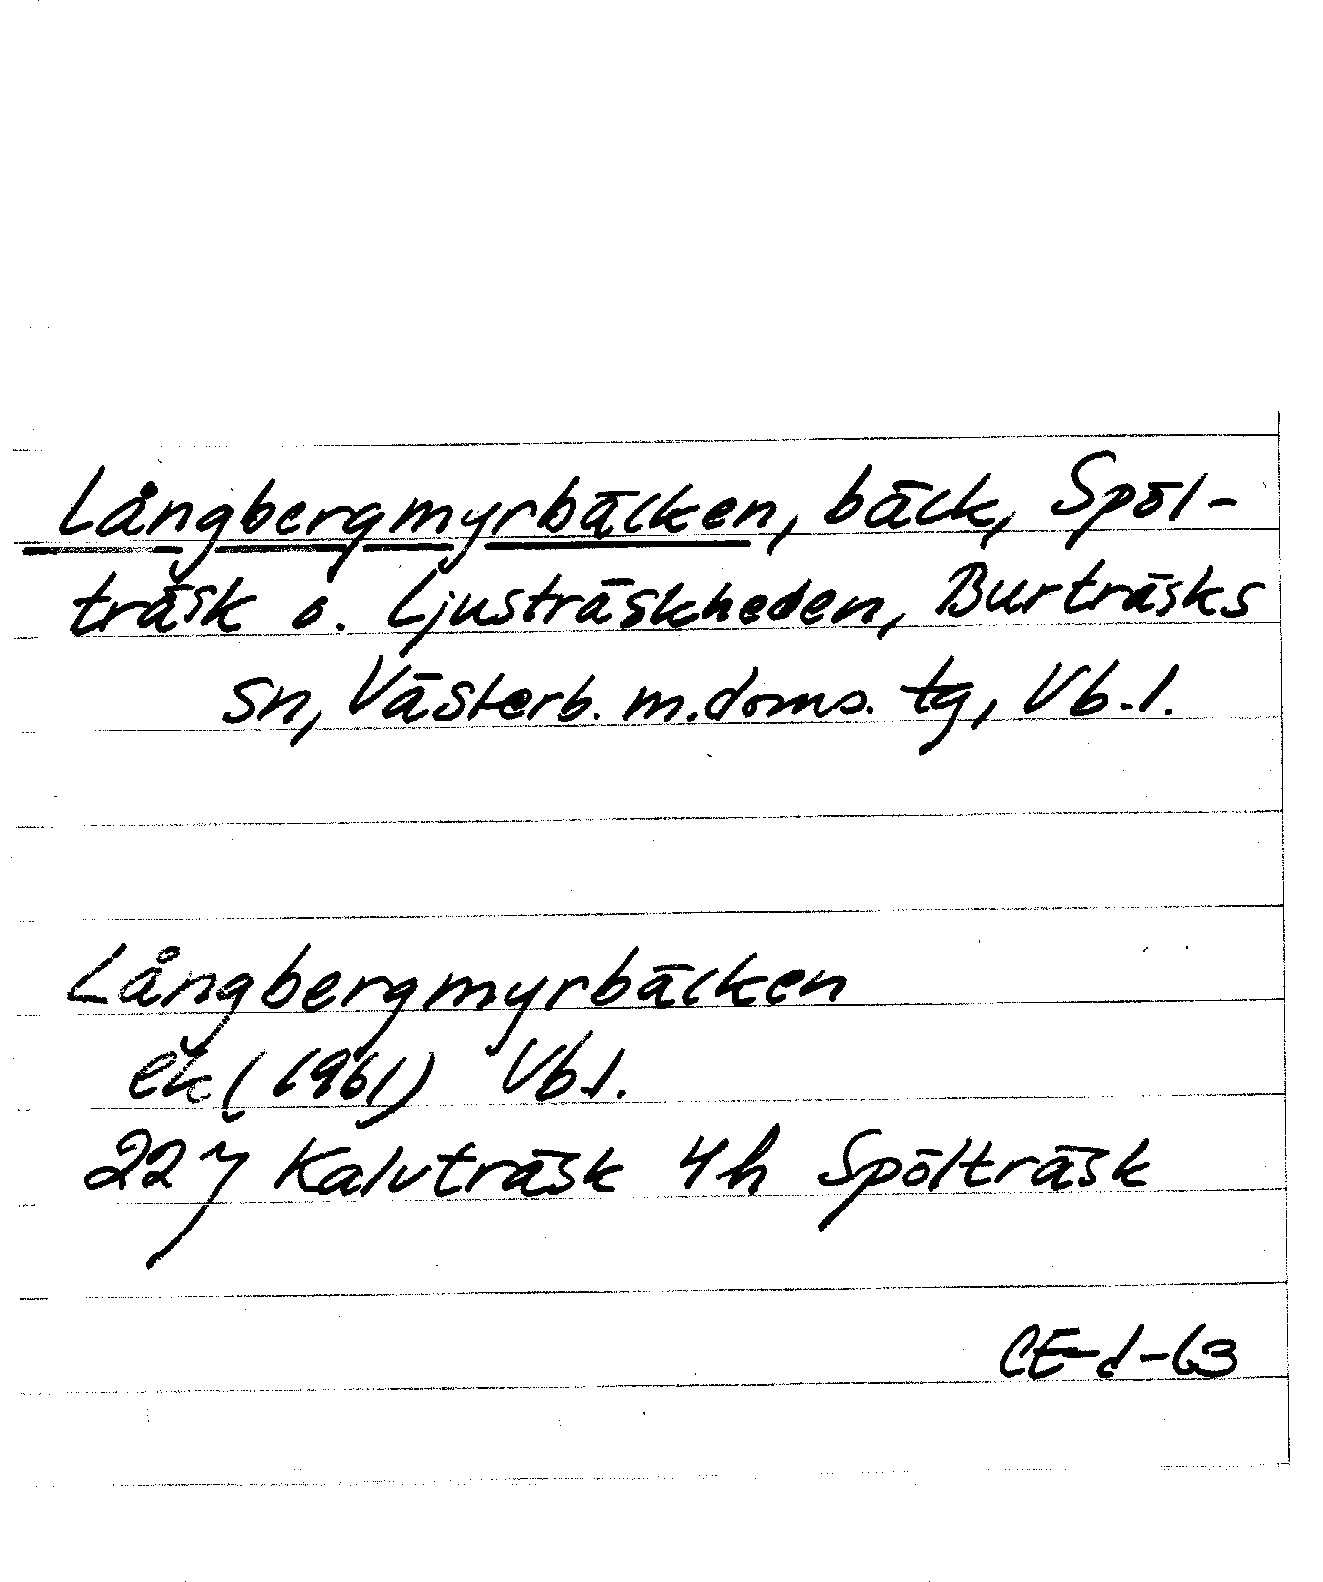 Långbergmyrbäcken, bäck, Spöl-
träsk o. Ljusträskheden, Burträsks
sn, Västerb. m. doms. tg, Vb. l.
Långbergmyrbäcken
ek (1961) Vb l.
22 J Kalvträsk 4h Spölträsk
CE-d-63